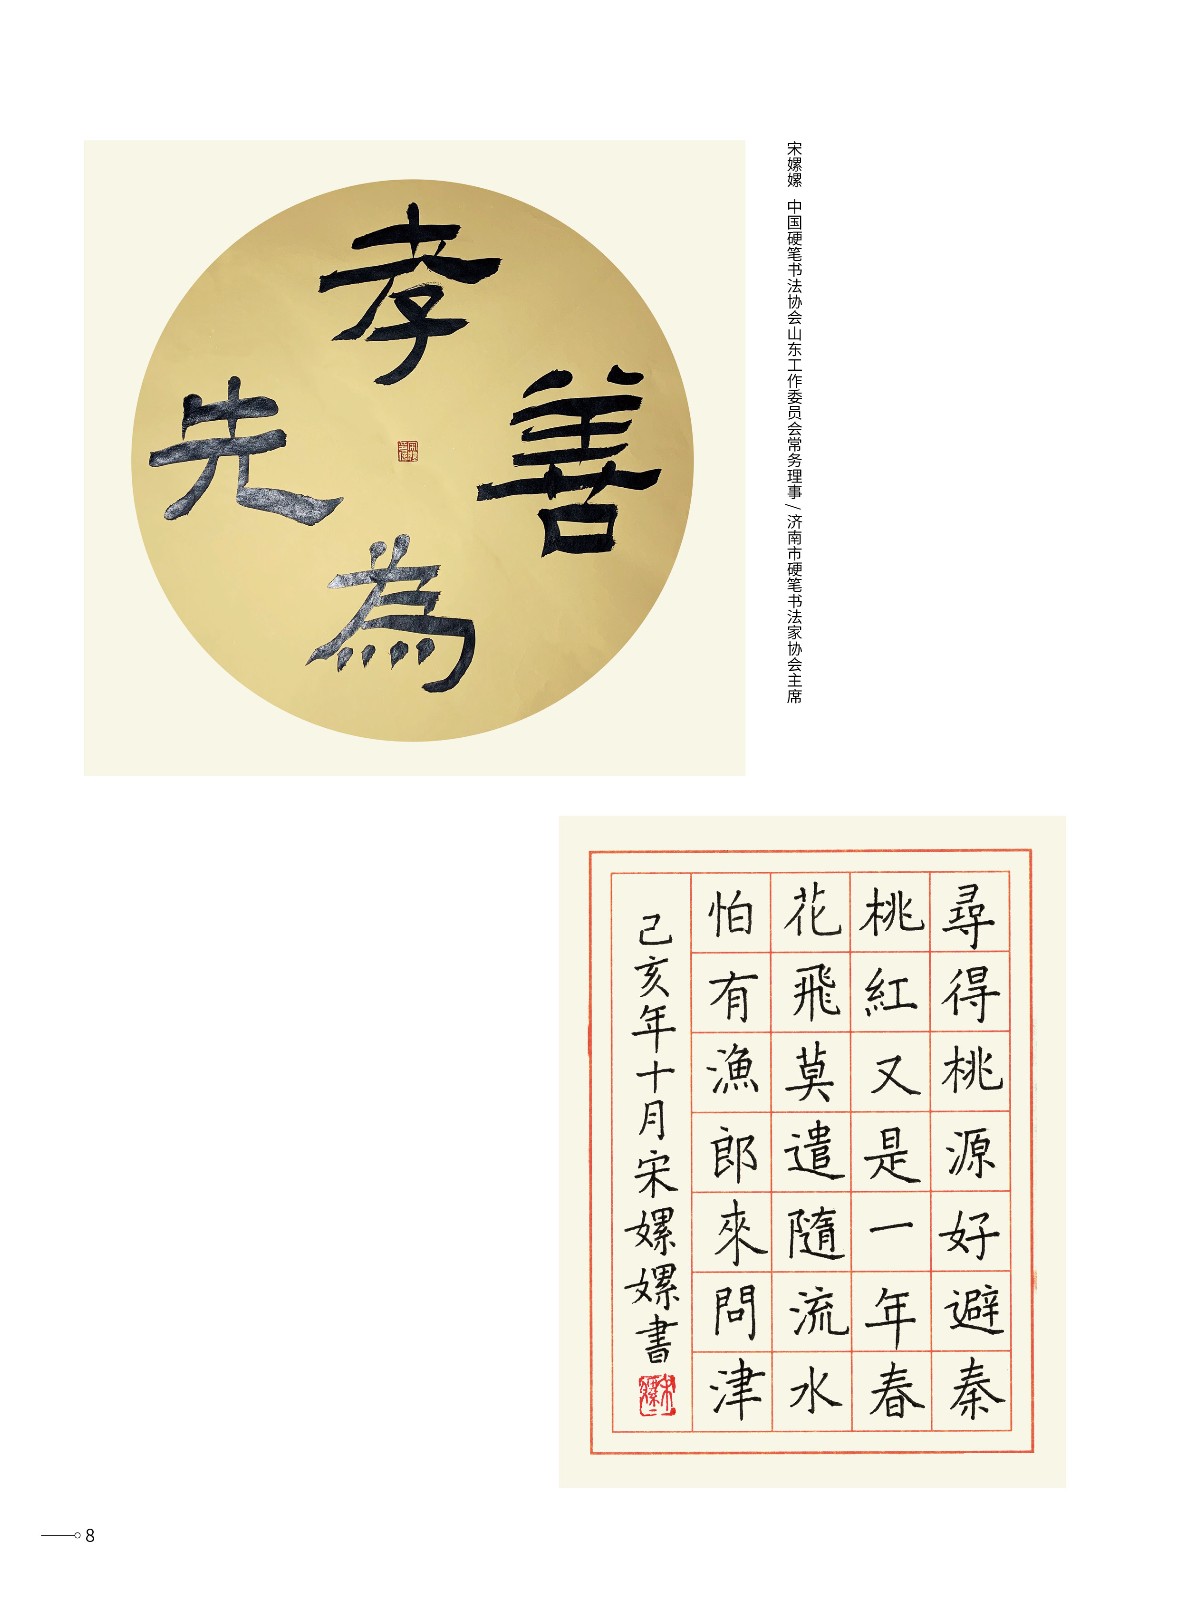 善
孝
為
先
宋嫘嫘 中国硬笔书法协会山东工作委员会常务理事 / 济南市硬笔书法家协会主席
尋得桃源好避秦
桃紅又是一年春
花飛莫遣隨流水
怕有漁郎來問津
己亥年十月宋嫘嫘書
8